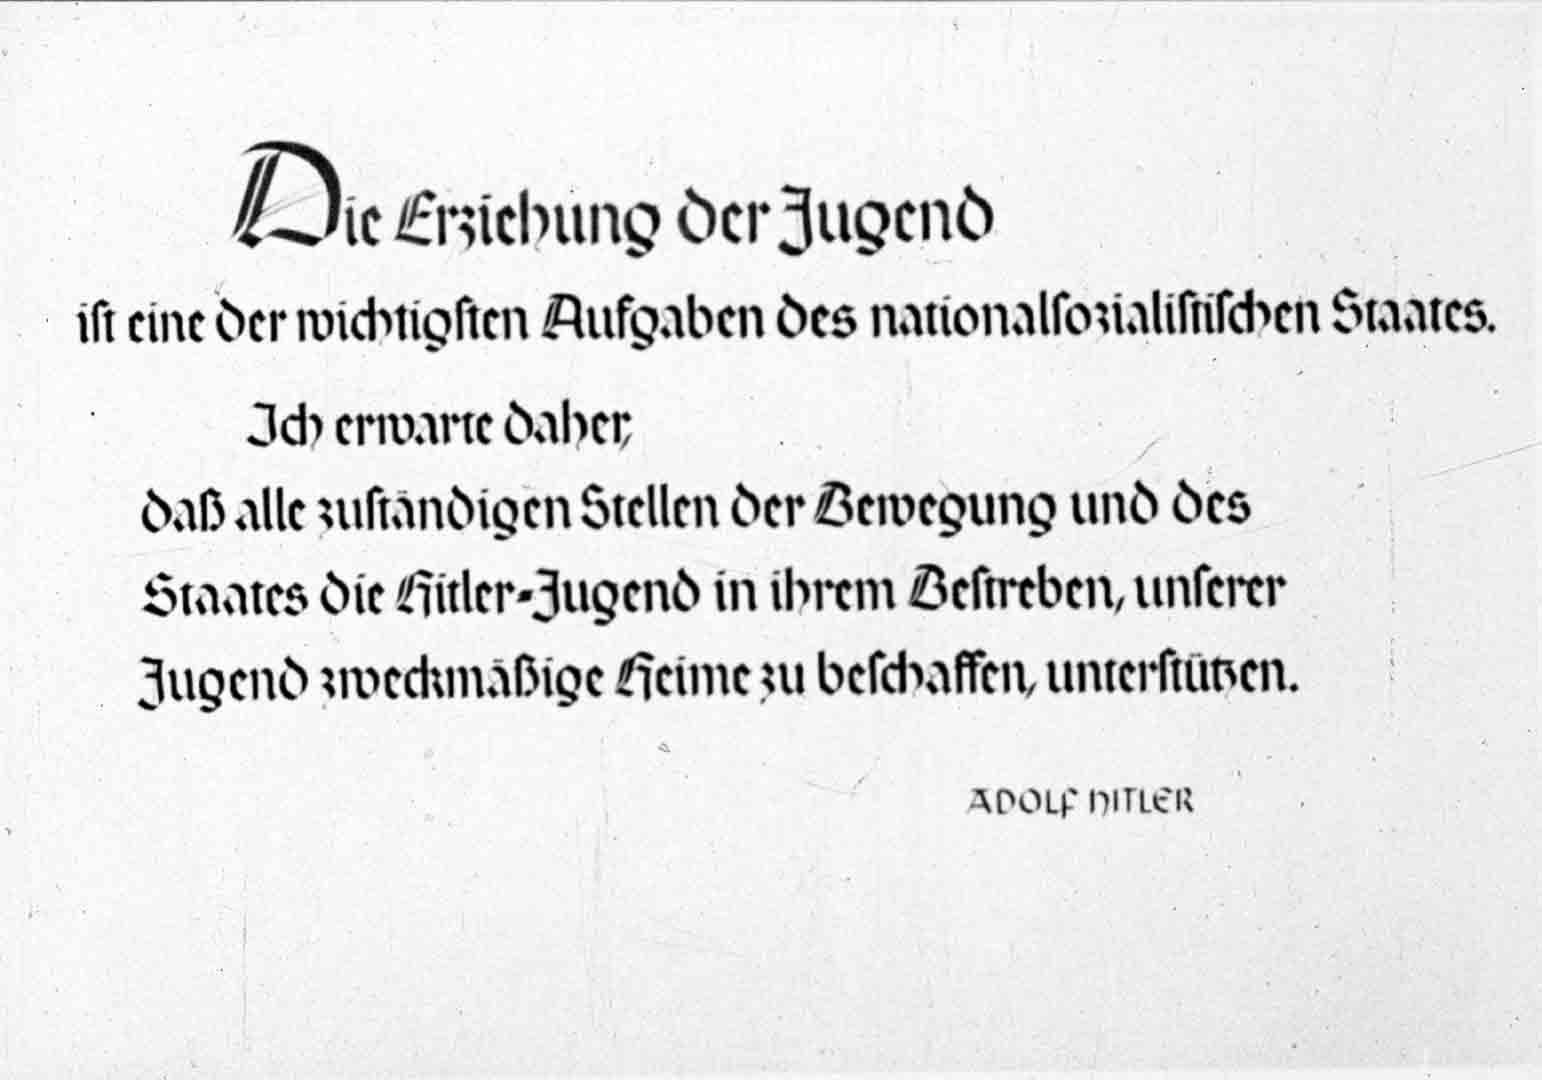 Die Erziehung der Jugend
ist eine der wichtigsten Aufgaben des nationalsozialistischen Staates.
Ich erwarte daher,
daß alle zuständigen Stellen der Bewegung und des
Staates die Hitler-Jugend in ihrem Bestreben, unserer
Jugend zweckmäßige Heime zu beschaffen, unterstützen.
ADOLF HITLER